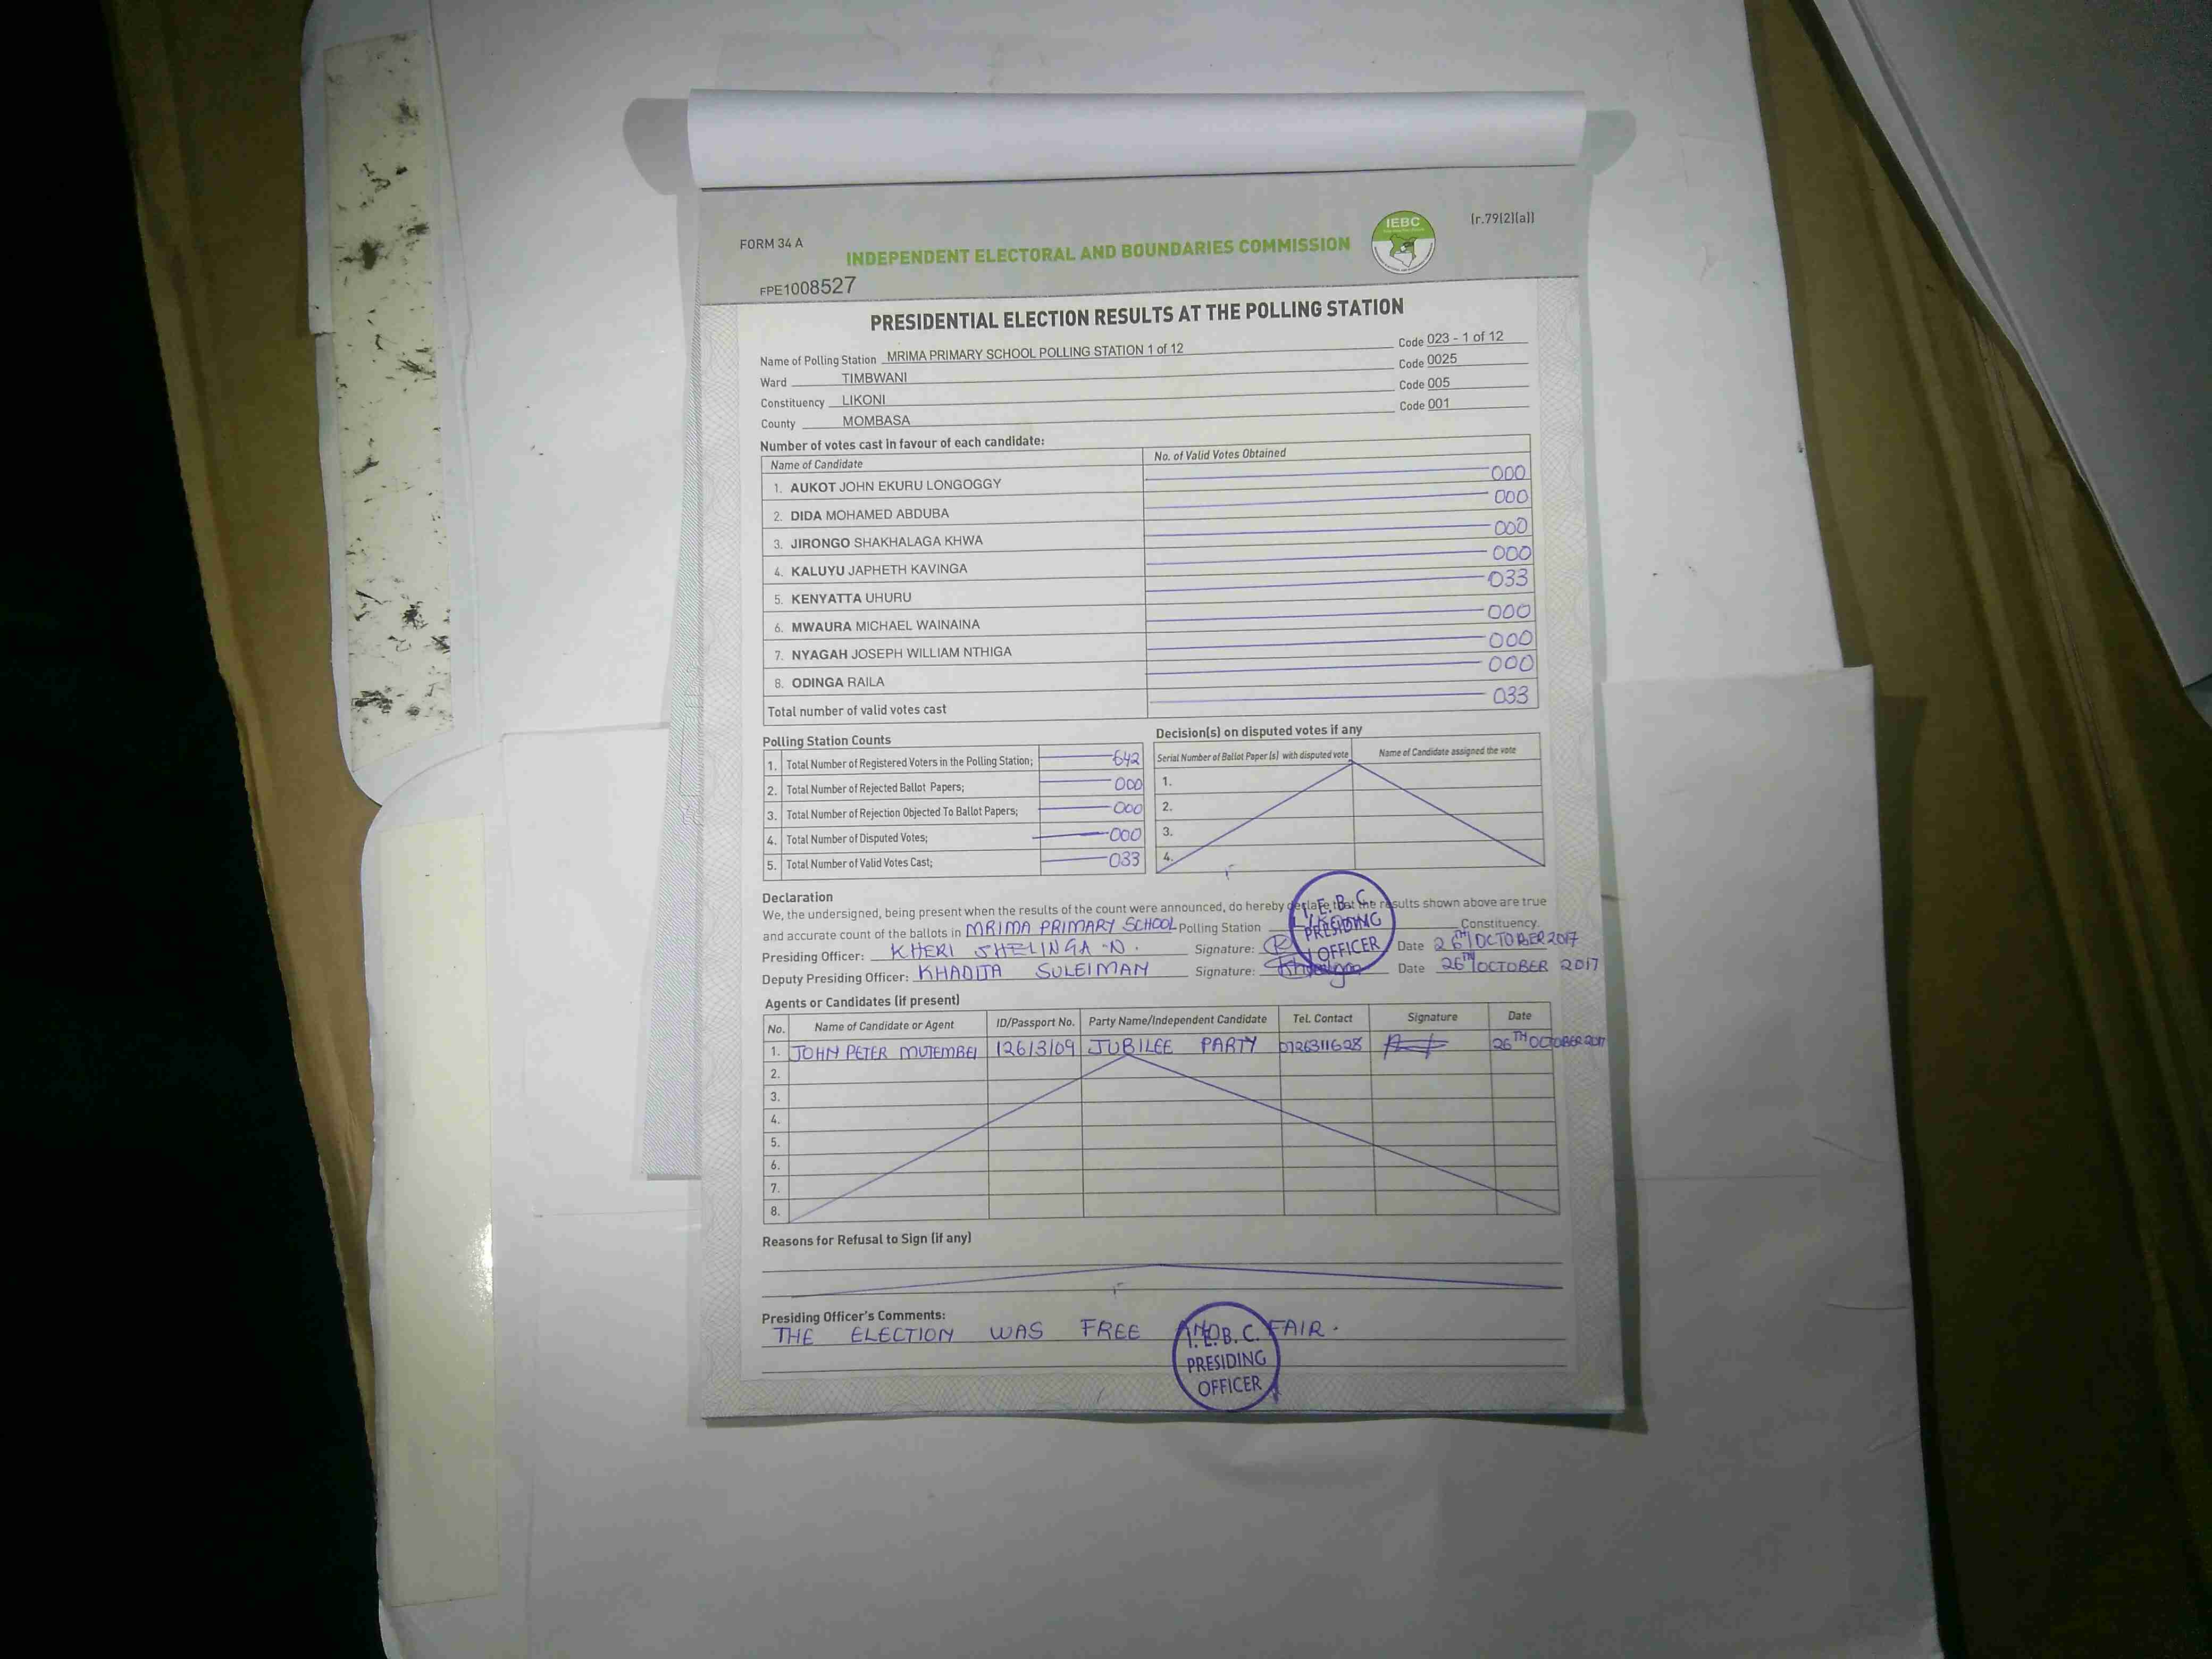 FORM 34 A
INDEPENDENT ELECTORAL AND BOUNDARIES COMMISSION
IEBC
(r.79(2)(a))
FPE1008527
PRESIDENTIAL ELECTION RESULTS AT THE POLLING STATION
Name of Polling Station MRIMA PRIMARY SCHOOL POLLING STATION 1 of 12 Code 023 - 1 of 12
Ward TIMBWANI Code 0025
Constituency LIKONI Code 005
County MOMBASA Code 001
Number of votes cast in favour of each candidate:
Name of Candidate No. of Valid Votes Obtained
1. AUKOT JOHN EKURU LONGOGGY 000
2. DIDA MOHAMED ABDUBA 000
3. JIRONGO SHAKHALAGA KHWA 000
4. KALUYU JAPHETH KAVINGA 000
5. KENYATTA UHURU 033
6. MWAURA MICHAEL WAINAINA 000
7. NYAGAH JOSEPH WILLIAM NTHIGA 000
8. ODINGA RAILA 000
Total number of valid votes cast 033
Polling Station Counts
1. Total Number of Registered Voters in the Polling Station; 642
2. Total Number of Rejected Ballot Papers; 000
3. Total Number of Rejection Objected To Ballot Papers; 000
4. Total Number of Disputed Votes; 000
5. Total Number of Valid Votes Cast; 033
Decision(s) on disputed votes if any
Serial Number of Ballot Paper (s) with disputed vote Name of Candidate assigned the vote
1.
2.
3.
4.
Declaration
We, the undersigned, being present when the results of the count were announced, do hereby declare that the results shown above are true
and accurate count of the ballots in MRIMA PRIMARY SCHOOL Polling Station LIKONI Constituency.
Presiding Officer: KHERI SHELINGA N. Signature: Date 26TH OCTOBER 2017
Deputy Presiding Officer: KHADIJA SULEIMAN Signature: Date 26TH OCTOBER 2017
I. E. B. C.
PRESIDING
OFFICER
Agents or Candidates (if present)
No. Name of Candidate or Agent ID/Passport No. Party Name/Independent Candidate Tel. Contact Signature Date
1. JOHN PETER MUTEMBEI 12613109 JUBILEE PARTY 0726311628 26TH OCTOBER 2017
2.
3.
4.
5.
6.
7.
8.
Reasons for Refusal to Sign (if any)
Presiding Officer's Comments:
THE ELECTION WAS FREE AND FAIR.
I. E. B. C.
PRESIDING
OFFICER